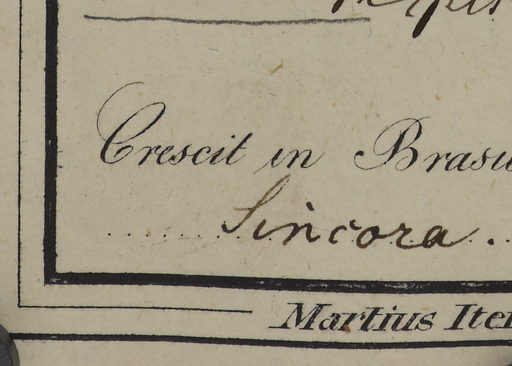 Crescit in Brasil
Sincora
Martius Iter